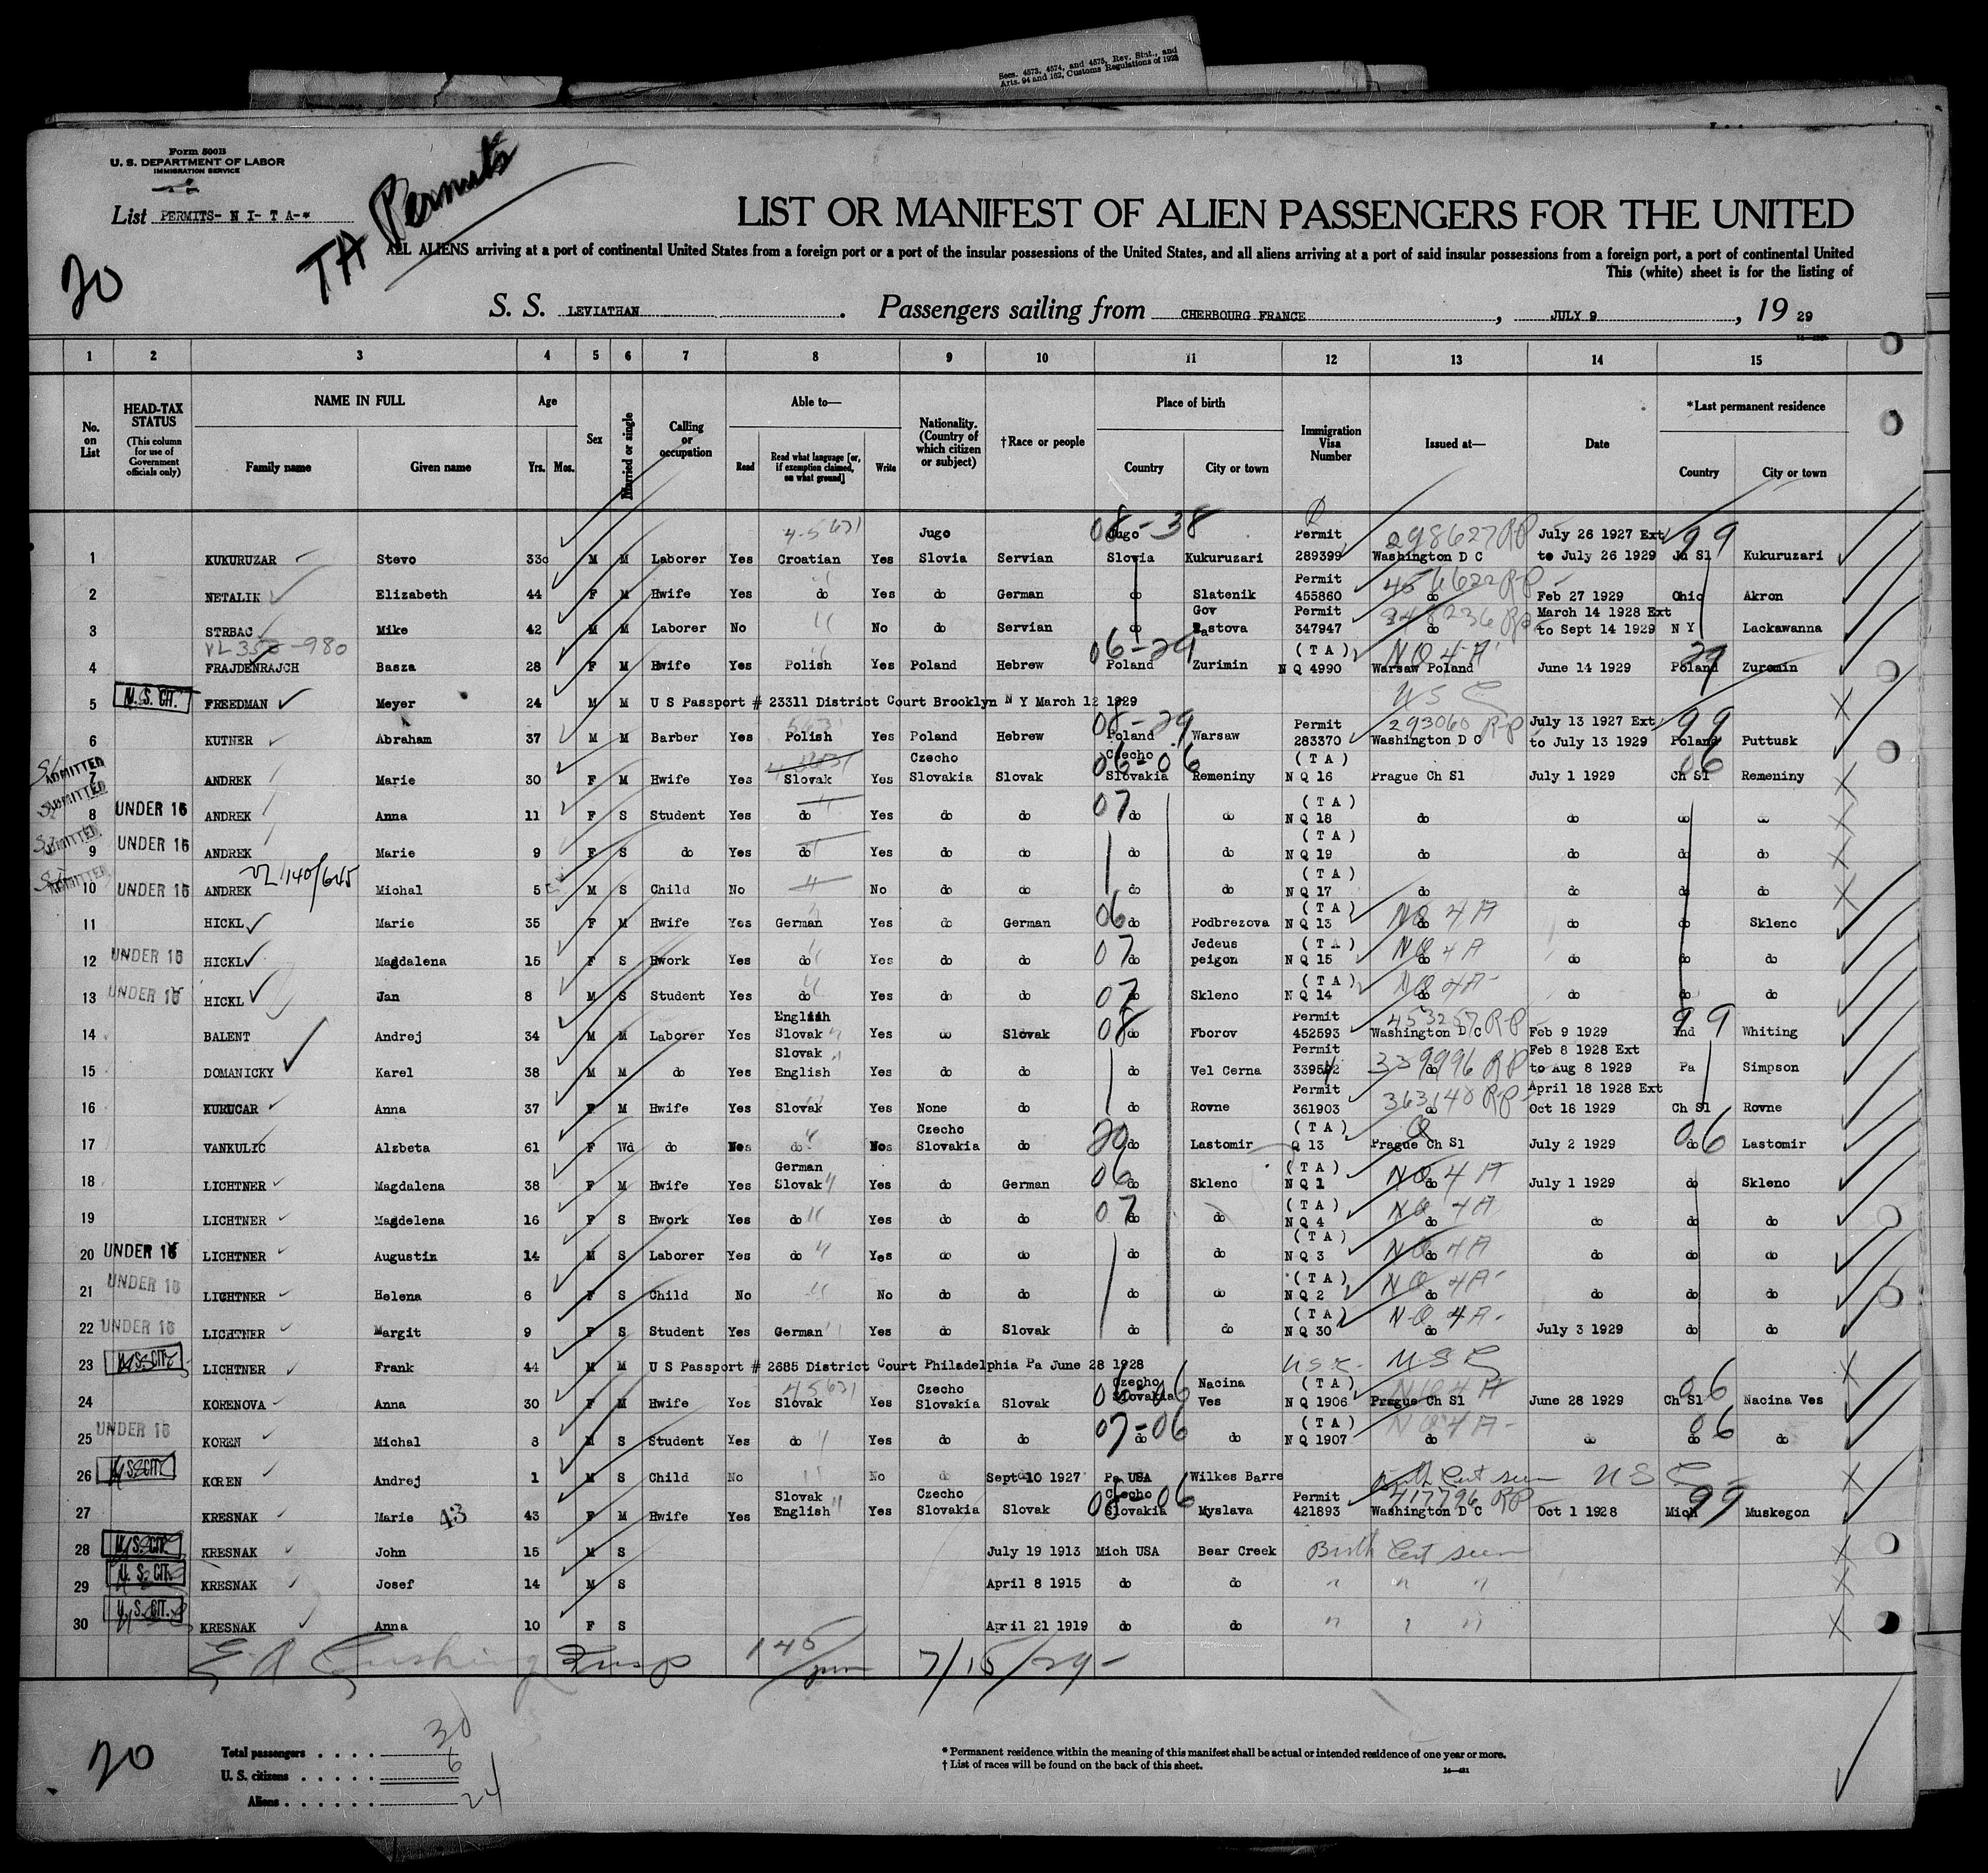 Secs. 4573, 4574, and 4575, Rev. Stat., and
Arts. 94 and 162, Customs Regulations of 1923
Form 500B
U. S. DEPARTMENT OF LABOR
IMMIGRATION SERVICE
List PERMITS- N I- T A-*
TA Permits
20
LIST OR MANIFEST OF ALIEN PASSENGERS FOR THE UNITED
ALL ALIENS arriving at a port of continental United States from a foreign port or a port of the insular possessions of the United States, and all aliens arriving at a port of said insular possessions from a foreign port, a port of continental United
This (white) sheet is for the listing of
S. S. LEVIATHAN. Passengers sailing from CHERBOURG FRANCE, JULY 9, 19 29
1 2 3 4 5 6 7 8 9 10 11 12 13 14 15
No. on List
HEAD-TAX STATUS (This column for use of Government officials only)
NAME IN FULL Family name Given name
Age Yrs. Mos.
Sex
Married or single
Calling or occupation
Able to— Read Read what language [or, if exemption claimed, on what ground] Write
Nationality. (Country of which citizen or subject)
†Race or people
Place of birth Country City or town
Immigration Visa Number
Issued at—
Date
*Last permanent residence Country City or town
1 KUKURUZAR Stevo 33 M M Laborer Yes Croatian Yes Jugo Slovia Servian Jugo Slovia 08-38 Kukuruzari Permit 289399 298627 RP Washington D C July 26 1927 Ext to July 26 1929 Ju Sl 99 Kukuruzari
2 NETALIK Elizabeth 44 F M Hwife Yes do Yes do German do Slatenik Permit 455860 456622 RP do Feb 27 1929 Ohio Akron
3 STRBAC Mike 42 M M Laborer No No do Servian do Gov Rastova Permit 347947 348236 RP do March 14 1928 Ext to Sept 14 1929 N Y Lackawanna
4 FRAJDENRAJCH Basza 28 F M Hwife Yes Polish Yes Poland Hebrew 06-29 Poland Zurimin (T A) N Q 4990 NQ 4A Warsaw Poland June 14 1929 Poland 29 Zuromin
5 U. S. CIT. FREEDMAN Meyer 24 M M U S Passport # 23311 District Court Brooklyn N Y March 12 1929 US C
6 KUTNER Abraham 37 M M Barber Yes Polish Yes Poland Hebrew 08-29 Poland Warsaw Permit 283370 293060 RP Washington D C July 13 1927 Ext to July 13 1929 Poland 99 Puttusk
ADMITTED 7 ANDREK Marie 30 F M Hwife Yes Slovak Yes Czecho Slovakia Slovak Czecho Slovakia 06-06 Remeniny (T A) N Q 16 Prague Ch Sl July 1 1929 Ch Sl 06 Remeniny
ADMITTED 8 UNDER 16 ANDREK Anna 11 F S Student Yes do Yes do do 07 do do (T A) N Q 18 do do do do
ADMITTED 9 UNDER 16 ANDREK Marie 9 F S do Yes do Yes do do do do (T A) N Q 19 do do do do
ADMITTED 10 UNDER 16 ANDREK Michal 5 M S Child No No do do do do (T A) N Q 17 do do do do
11 HICKL Marie 35 F M Hwife Yes German Yes do German 06 do Podbrezova (T A) N Q 13 NQ 4A do do do Skleno
12 UNDER 16 HICKL Magdalena 15 F S Hwork Yes do Yes do do 07 do Jedeus peigon (T A) N Q 15 NQ 4A do do do do
13 UNDER 16 HICKL Jan 8 M S Student Yes do Yes do do 07 do Skleno (T A) N Q 14 NQ 4A do do do do
14 BALENT Andrej 34 M M Laborer Yes English Slovak Yes do Slovak 08 do Fborov Permit 452593 453257 RP Washington D C Feb 9 1929 Ind 99 Whiting
15 DOMANICKY Karel 38 M M do Yes Slovak English Yes do do do Vel Cerna Permit 339996 RP do Feb 8 1928 Ext to Aug 8 1929 Pa Simpson
16 KURUCAR Anna 37 F M Hwife Yes Slovak Yes None do do Rovne Permit 361903 363140 RP do April 18 1928 Ext Oct 18 1929 Ch Sl Rovne
17 VANKULIC Alzbeta 61 F Wd do do Czecho Slovakia do 20 do Lastomir (T A) Q 13 Q Prague Ch Sl July 2 1929 do 06 Lastomir
18 LICHTNER Magdalena 38 F M Hwife Yes German Slovak Yes do German 06 do Skleno (T A) N Q 1 NQ 4A do July 1 1929 do Skleno
19 LICHTNER Magdelena 16 F S Hwork Yes do Yes do do 07 do do (T A) N Q 4 NQ 4A do do do do
20 UNDER 16 LICHTNER Augustin 14 M S Laborer Yes do Yes do do do do (T A) N Q 3 NQ 4A do do do do
21 UNDER 16 LICHTNER Helena 6 F S Child No No do do do do (T A) N Q 2 NQ 4A do do do do
22 UNDER 16 LICHTNER Margit 9 F S Student Yes German Yes do Slovak do do (T A) N Q 30 NQ 4A do July 3 1929 do do
23 U. S. CIT. LICHTNER Frank 44 M M U S Passport # 2685 District Court Philadelphia Pa June 28 1928 U S C U S C
24 KORENOVA Anna 30 F M Hwife Yes Slovak Yes Czecho Slovakia Slovak Czecho Slovakia 06-06 Nacina Ves (T A) N Q 1906 NQ 4A Prague Ch Sl June 28 1929 Ch Sl 06 Nacina Ves
25 UNDER 16 KOREN Michal 8 M S Student Yes do Yes do do 07-06 do do (T A) N Q 1907 NQ 4A do do do 06 do
26 U. S. CIT. KOREN Andrej 1 M S Child No No Sept 10 1927 Pa USA Wilkes Barre Birth Cert seen U S C
27 KRESNAK Marie 43 43 F M Hwife Yes Slovak English Yes Czecho Slovakia Slovak Czecho Slovakia 08-06 Myslava Permit 421893 417796 RP Washington D C Oct 1 1928 Mich 99 Muskegon
28 U. S. CIT. KRESNAK John 15 M S July 19 1913 Mich USA Bear Creek Birth Cert seen
29 U. S. CIT. KRESNAK Josef 14 M S April 8 1915 do do " " "
30 U. S. CIT. KRESNAK Anna 10 F S April 21 1919 do do " " "
E A Cushing Insp 145 pm 7/15/29
20
Total passengers . . . . 30
U. S. citizens . . . . . 6
Aliens . . . . . . 24
* Permanent residence within the meaning of this manifest shall be actual or intended residence of one year or more.
† List of races will be found on the back of this sheet.